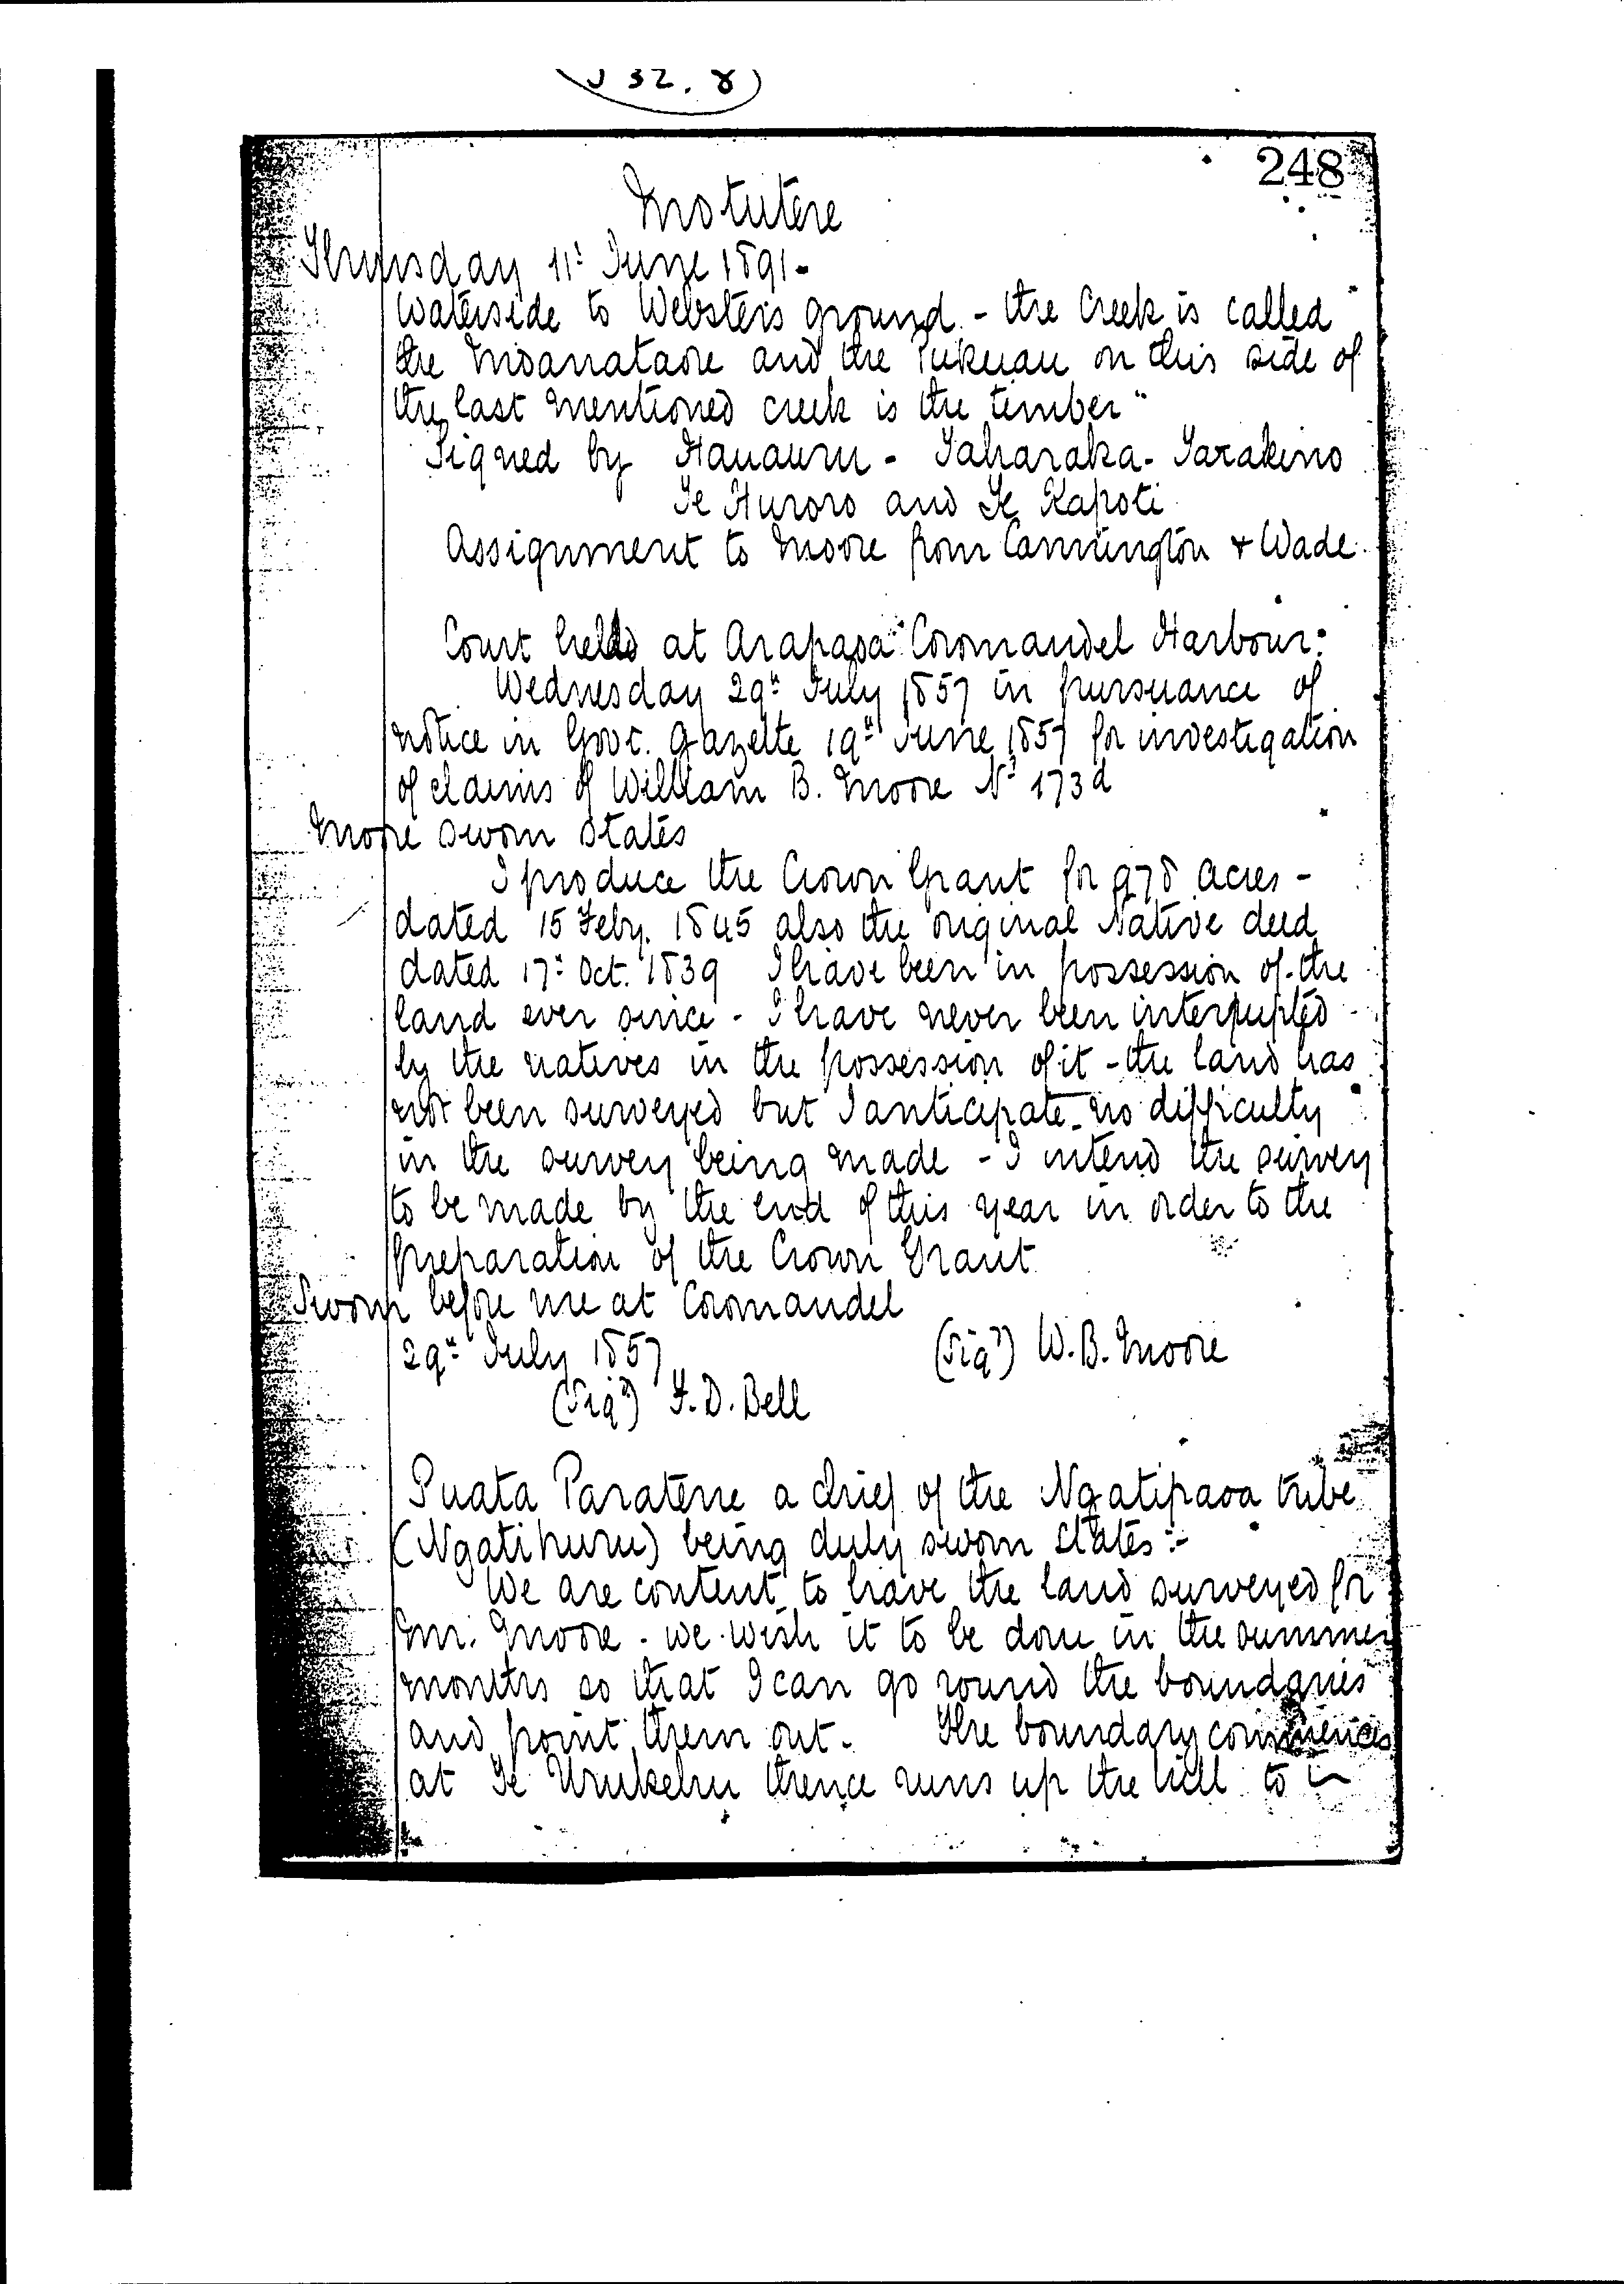 J 32. 8
248
Motutere
Thursday 11t June 1891-
Waterside to Websters ground - the Creek is called
the and the Pukuau on this side of
the last mentioned creek is the timber"
Signed by Hauauru - Taharaka - Tarakino
Te Huroro and Te Kapoti
Assignment to Moore from Cannington & Wade
Court held at Arapaoa Coromandel Harbour:
Wednesday 29th July 1857 in pursuance of
notice in Govt. Gazette 19th June 1857 for investigation
of claims of William B. Moore No 173d
Moore sworn states
I produce the Crown Grant for 978 acres -
dated 15 Feby. 1845 also the original Native deed
dated 17th Oct. 1839 I have been in possession of the
land ever since - I have never been interrupted
by the natives in the possession of it - the land has
not been surveyed but I anticipate no difficulty
in the survey being made - I intend the survey
to be made by the end of this year in order to the
preparation of the Crown Grant
Sworn before me at Coromandel
29th July 1857
(Sigd) W.B. Moore
(Sigd) F.D. Bell
Puata Paratene a chief of the Ngatipaoa tribe
(Ngatihuru) being duly sworn states :-
We are content to have the land surveyed for
Mr. Moore - we wish it to be done in the summer
months so that I can go round the boundaries
and point them out. The boundary commences
at Te Urukehu thence runs up the hill to